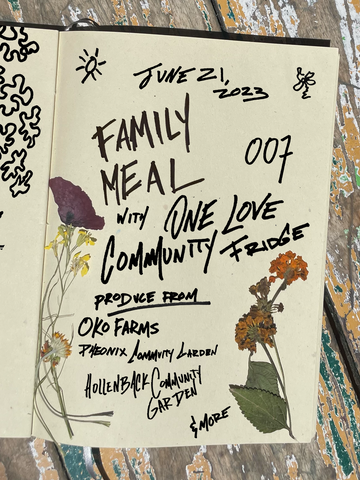 JUNE 21,
2023
FAMILY
MEAL
007
WITH ONE LOVE
COMMUNITY FRIDGE
PRODUCE FROM
OKO FARMS
PHEONIX COMMUNITY GARDEN
HOLLENBACK COMMUNITY
GARDEN
& MORE